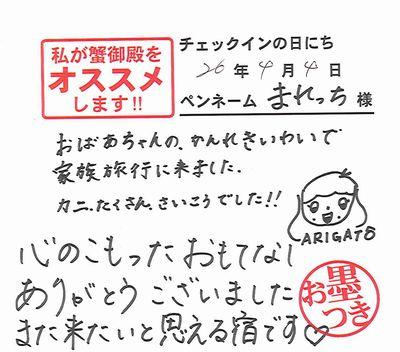 私が蟹御殿を
オススメ
します!!
チェックインの日にち
26年4月4日
ペンネーム まれっち 様
おばあちゃんの、かんれきいわいで
家族旅行に来ました。
カニ、たくさん、さいこうでした!!
ARIGATŌ
心のこもったおもてなし
ありがとうございました
また来たいと思える宿です♡
お墨つき